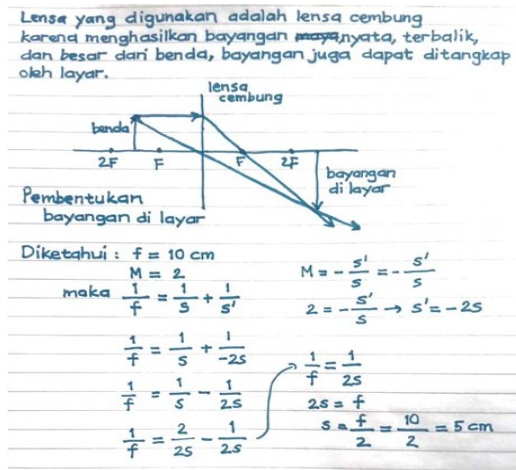 Lensa yang digunakan adalah lensa cembung
karena menghasilkan bayangan maya nyata, terbalik,
dan besar dari benda, bayangan juga dapat ditangkap
oleh layar.
lensa
cembung
benda
2F F F 2F
bayangan
di layar
Pembentukan
bayangan di layar
Diketahui : f = 10 cm
M = 2
maka 1/f = 1/s + 1/s'
1/f = 1/s + 1/-2s
1/f = 1/s - 1/2s
1/f = 2/2s - 1/2s
M = - s'/s = - s'/s
2 = - s'/s → s' = -2s
1/f = 1/2s
2s = f
s = f/2 = 10/2 = 5 cm